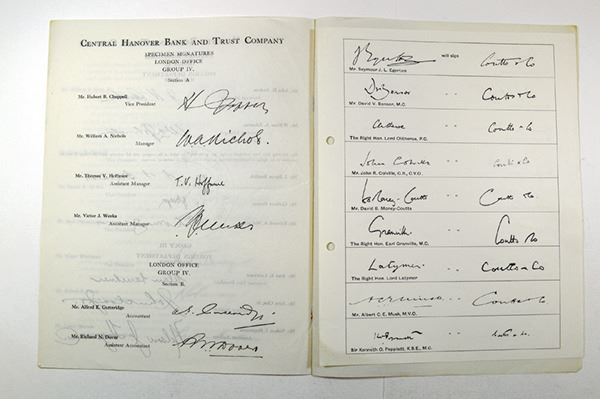 CENTRAL HANOVER BANK AND TRUST COMPANY
SPECIMEN SIGNATURES
LONDON OFFICE
GROUP IV.
Section A
Mr. Hubert B. Chappell
Vice President
Mr. William A. Nichols
Manager
WANichols.
Mr. Thomas V. Hoffmire
Assistant Manager
T.V. Hoffmire
Mr. Victor J. Weeks
Assistant Manager
LONDON OFFICE
GROUP IV.
Section B.
Mr. Alfred E. Gutteridge
Accountant
Mr. Richard N. Dover
Assistant Accountant
RN Dover
JEgerton will sign Coutts & Co
Mr. Seymour J. L. Egerton
DVBenson " " Coutts & Co
Mr. David V. Benson, M.C.
" " Coutts & Co
The Right Hon. Lord Chitheroe, P.C.
John Colville " " Coutts & Co
Mr. John R. Colville, C.B., C.V.O.
Money-Coutts " " Coutts & Co
Mr. David B. Money-Coutts
Granville " " Coutts & Co
The Right Hon. Earl Granville, M.C.
Latymer " " Coutts & Co
The Right Hon. Lord Latymer
" " Coutts & Co
Mr. Albert C. E. Musk, M.V.O.
" " Coutts & Co.
Sir Kenneth O. Peppiatt, K.B.E., M.C.